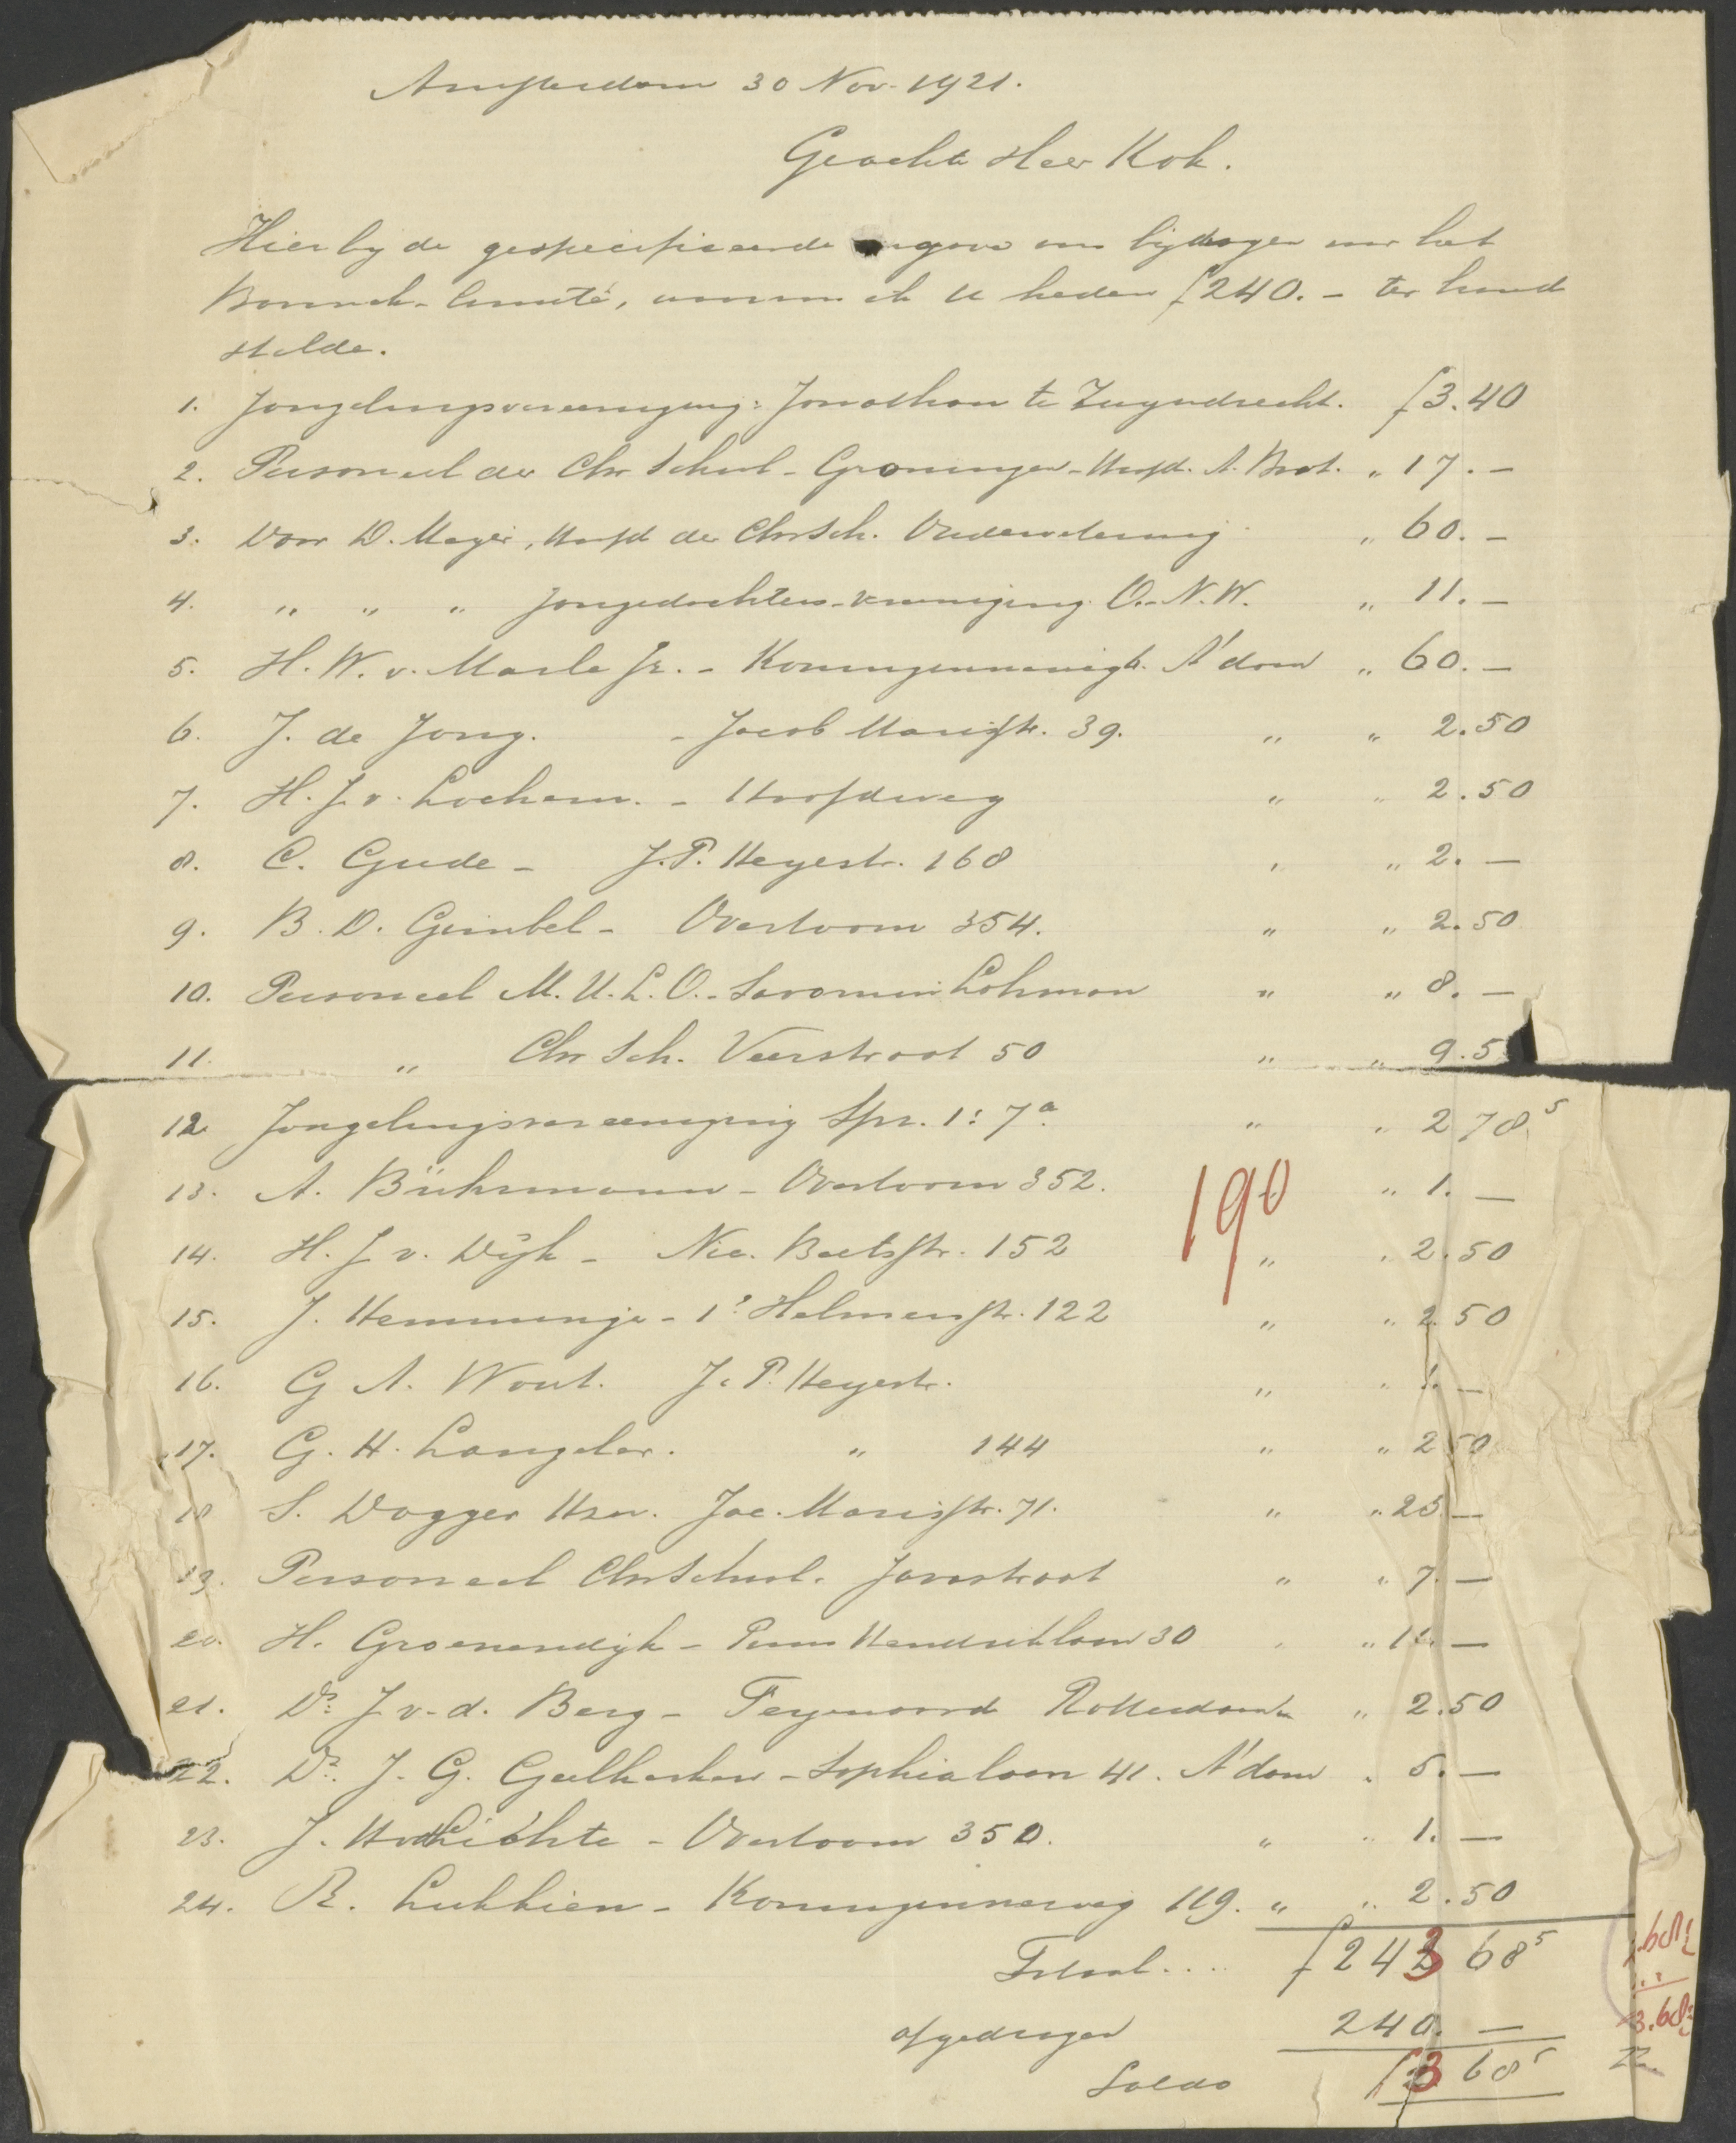 Amsterdam 30 Nov. 1921.
Geachte Heer Kok.
Hierbij de gespecificeerde opgave van bijdragen voor het
comité, waarvan ik U heden f240.- ter hand
stelde.
1. Jongelingsvereeniging: Jonathan te Zwyndrecht. f3.40
2. Personeel der Chr School - Groningen - Hoofd. A. Brat. " 17.-
3. Door D. Mayer, Hoofd der Chr Sch. Oudewetering " 60.-
4. " " " Jongedochters-vereeniging O.-N.W. " 11.-
5. H. W. v. Marle Jr. - Koninginneweg A'dam " 60.-
6. J. de Jong. - Jacob Marisstr. 39. " " 2.50
7. H. J. v. Lochem. - Hoofdweg " " 2.50
8. C. Gude - J.P. Heyestr. 168 " " 2.-
9. B. D. Gimbel - Overtoom 354. " " 2.50
10. Personeel M.U.L.O. - Savornin Lohman " " 8.-
11. " Chr Sch. Veerstraat 50 " " 9.5
12. Jongelingsvereeniging Spr. 1:7a. " " 2 78 5
13. A. Bührmann - Overtoom 352. " " 1.-
190
14. H. J v. Dijk - Nic. Beetsstr. 152 " " 2.50
15. J. Hemminga - 1e Helmersstr. 122 " " 2.50
16. G A. Wout. J. P. Heyestr. " " 1.-
17. G. H. Langeler. " 144 " " 2 50
18 S. Dogger Hzn. Jac. Marisstr. 71. " " 25.-
19. Personeel Chr School. Javastraat " " 7.-
20. H. Groenendijk - Prins Hendriklaan 30 " " -
21. Ds. J v. d. Berg - Feyenoord Rotterdam " 2.50
22. Dr. J. G. Geelkerken - Sophialaan 41. A'dam " 5.-
23. J. - Overtoom 350. " " 1.-
24. R. Lukkien - Koninginneweg 119. " " 2.50
Totaal.... f 243 68 5
afgedragen 240.-
Saldo f 3 68 5